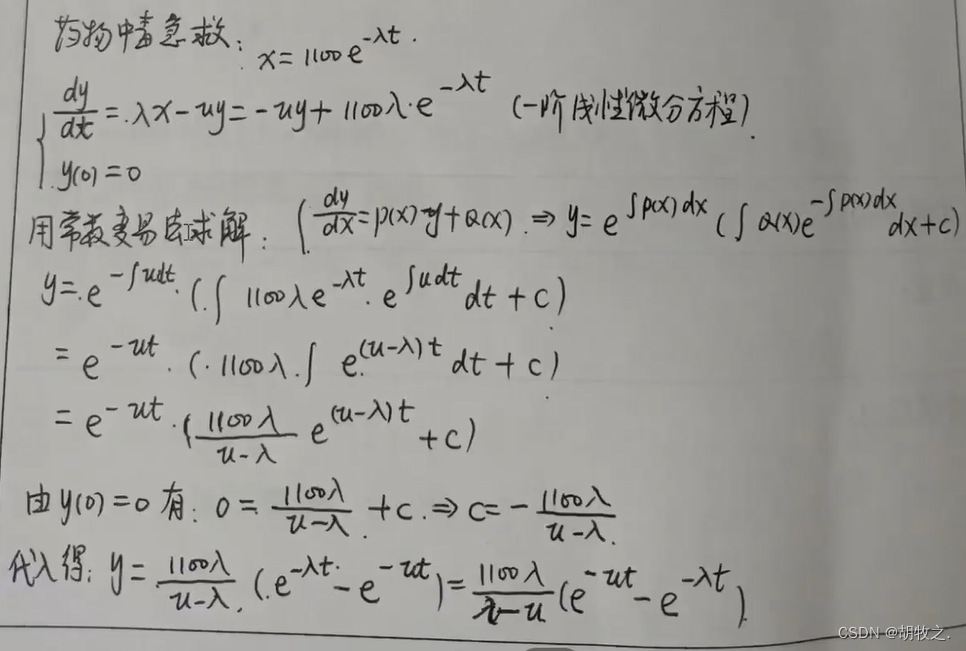 药物中毒急救: x=1100e^{-λt}.
{ dy/dt=.λx-uy=-uy+1100λ·e^{-λt} (一阶线性微分方程).
y(0)=0
用常数变易法求解: { dy/dx=p(x)·y+Q(x). ⇒ y=e^{∫p(x)dx}(∫Q(x)e^{-∫p(x)dx}dx+c)
y=.e^{-∫udt}.(.∫1100λe^{-λt}.e^{∫udt}dt+c).
=e^{-ut}.(.1100λ.∫e^{(u-λ)t}dt+c).
=e^{-ut}.(1100λ/(u-λ) e^{(u-λ)t}+c)
由y(0)=0有: 0=1100λ/(u-λ)+c.⇒c=-1100λ/(u-λ).
代入得: y=1100λ/(u-λ).(.e^{-λt}-e^{-ut})=1100λ/(λ-u)(e^{-ut}-e^{-λt}).
CSDN @胡牧之.